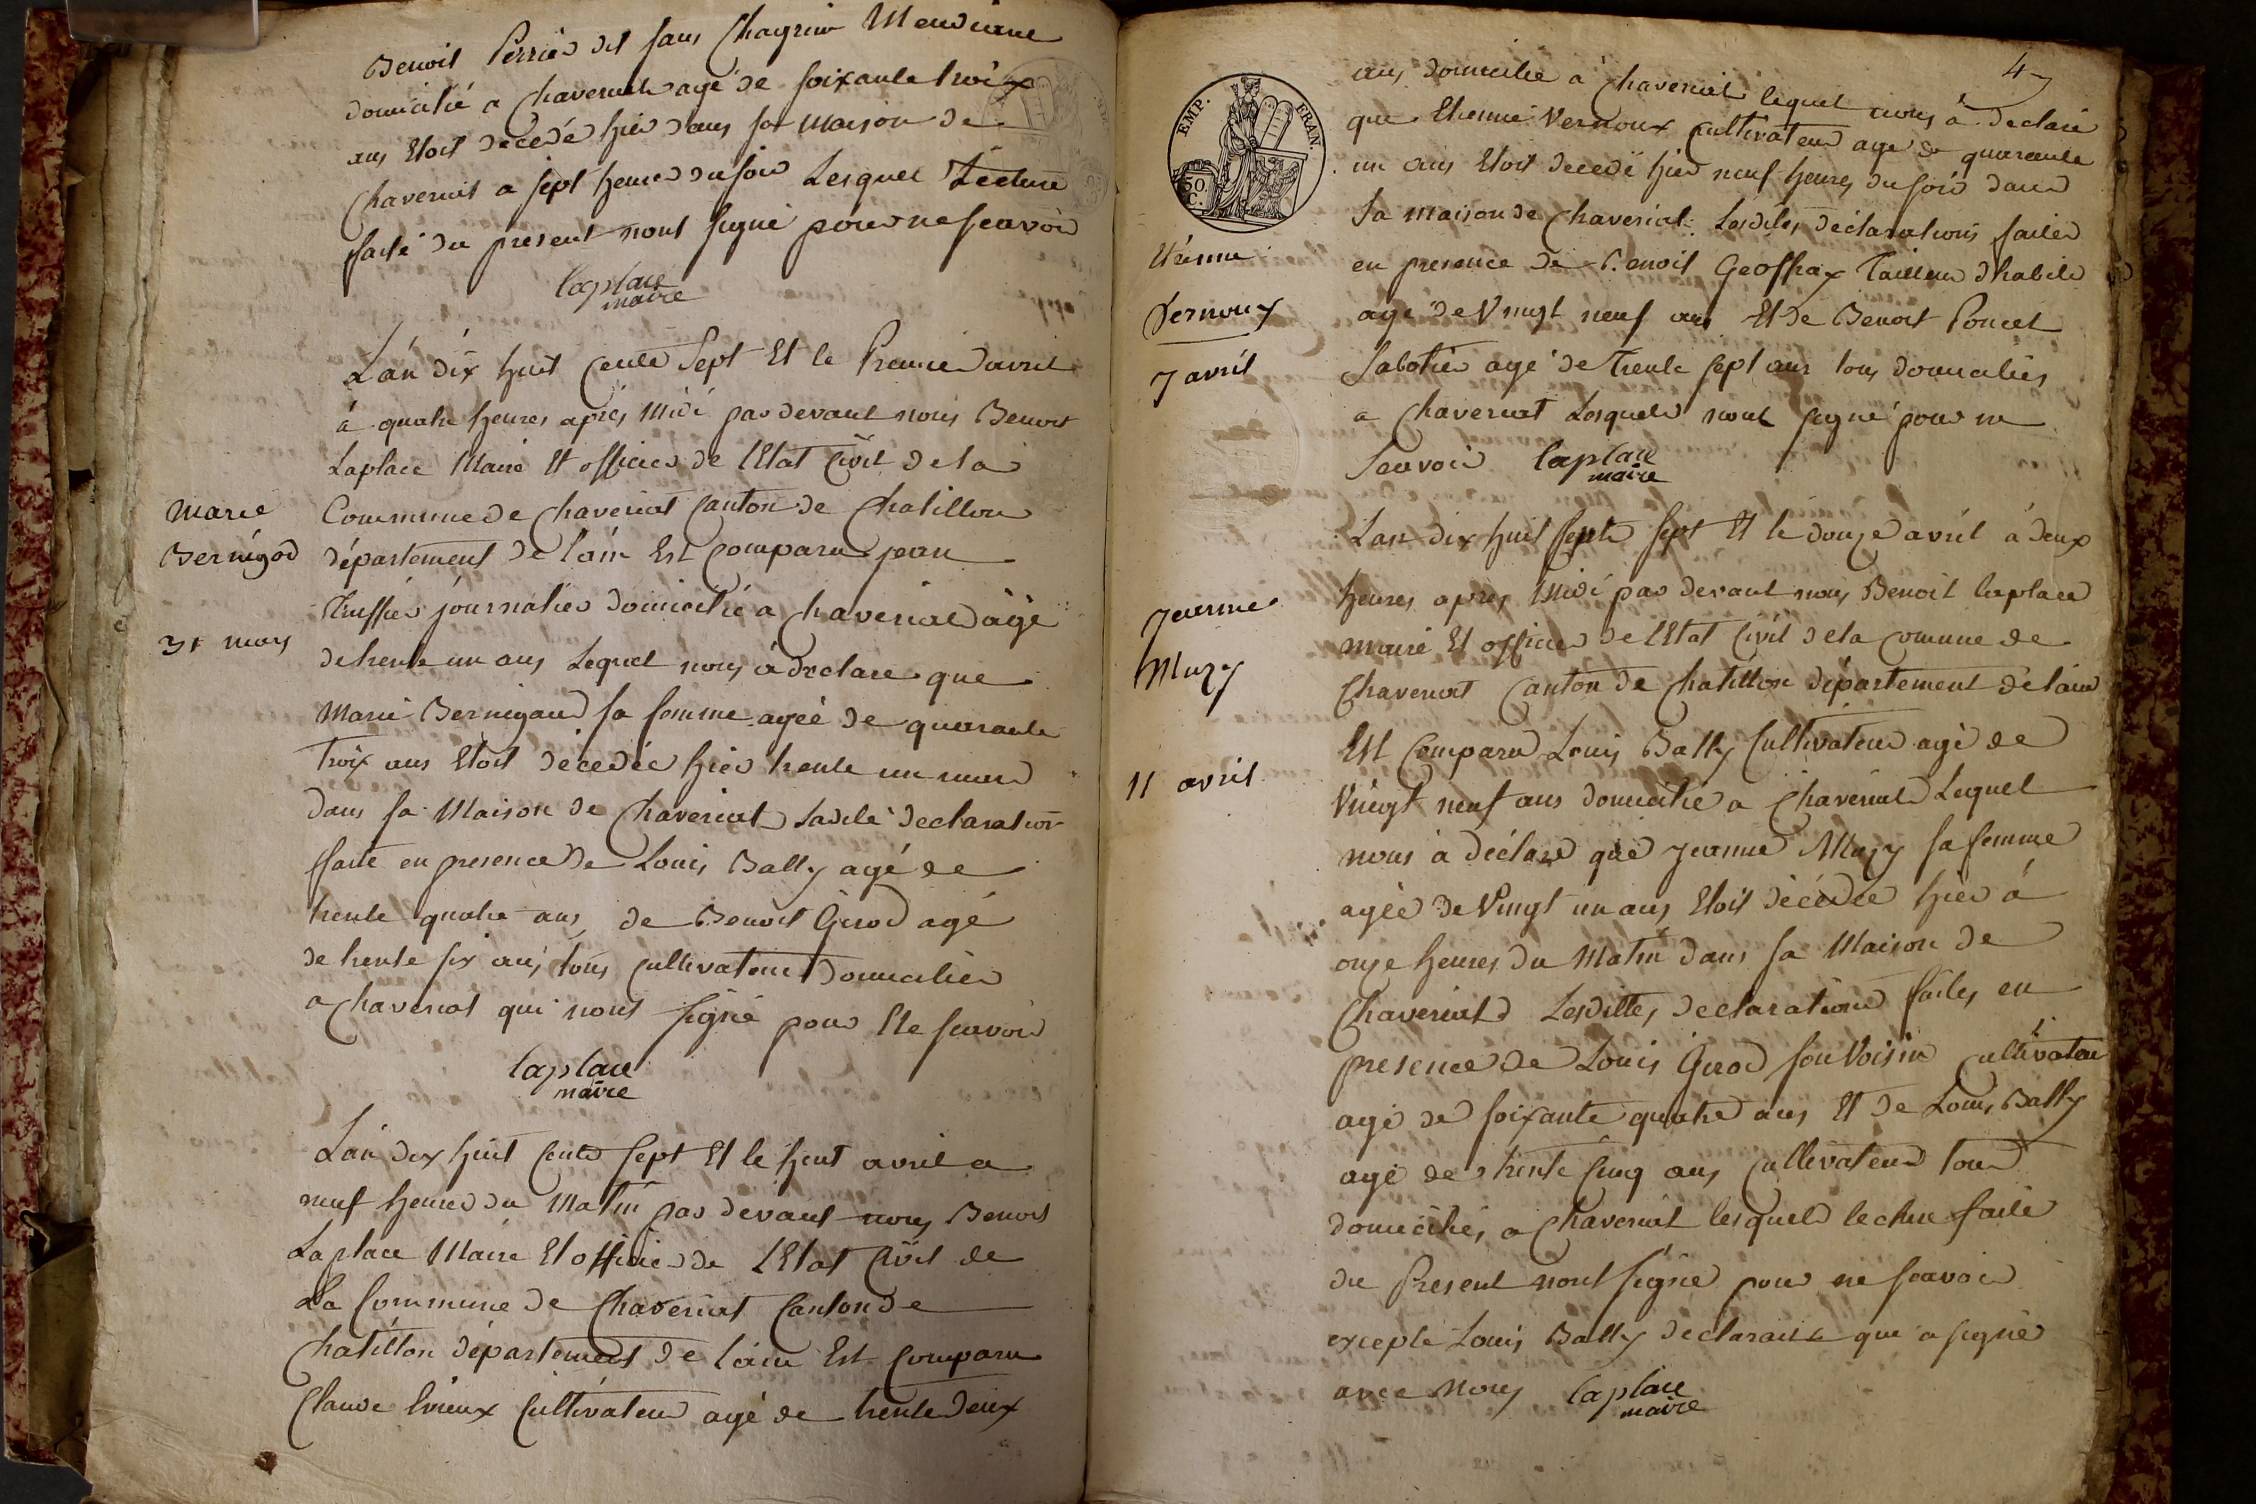 Benoit Perrier dit sans Chagrin Mendiane
domicilié a Chaveriat agé de soixante troix
ans Etoit décedé hier dans sa maison de
Chaveriat a sept heures du soir Lesquel Lecture
faite du present nont signé pour ne scavoir
laplace
maire
L'án dix huit Cents Sept Et le Premier avril
á quatre heures aprés midi par devant nous Benoit
Laplace Maire Et officier de lEtat Civil de la
Marie
Bernigod
31 mars
Commune de Chaveriat Canton de Chatillon
département de lain Est Comparu jean
Truffier journalier domicilié a Chaveriat agé
de trente un ans Lequel nous à declare que
Marie Bernigaud sa femme agéé de quarante
troix ans Etoit décedée hier trente un mars
dans sa Maison de Chaveriat Ladite declaration
faite en presence de Louis Bally agé de
trente quatre ans, de Benoit Girod agé
de trente six ans, tous Cultivateurs Domicilier
a Chaveriat qui nont signé pour Ne scavoir
laplace
maire
L'án dix huit Cents Sept Et le huit avril a
neuf heures du Matin par devant nous Benoit
Laplace Maire Et officier de LEtat Civil de
La Commune de Chaveriat Canton de
Chatillon département de lain Est Comparu
Claude Cultivateur agé de trente deux
4
EMP. FRAN.
50.
C.
ans domicilié a Chaveriat lequel nous à declaré
que Etienne Vernoux Cultivateur agé de quarante
un ans Etoit decedé hier neuf heures du soir dans
sa maison de Chaveriat. Lesdites déclarations faites
Etienne
Vernoux
7 avril
en presence de Benoit Geoffray Tailleur dhabits
agé de Vingt neuf ans Et de Benoit Poncet
Sabotier agé de Trente Sept ans tous domiciliés
a Chaveriat Lesquels nont signé pour ne
Scavoir laplace
maire
Lan dix huit Cents Sept Et le douze avril á deux
Jeanne
Muzy
11 avril
heures aprés Midi par devant nous Benoit laplace
maire Et officier de lEtat Civil de la Comune de
Chaveriat Canton de Chatillon département de lain
Est Comparu Louis Bally Cultivateur agé de
Vingt neuf ans domicilié a Chaveriat Lequel
nous à déclaré que jeanne Muzy sa femme
agée de Vingt un ans Etoit décédée hier á
onze heures du Matin dans sa Maison de
Chaveriat Lesdittes declarations faites en
presence de Louis Girod son Voisin Cultivateur
agé de soixante quatre ans Et de Louis Bally
agé de trente Cinq ans Cultivateurs tous
domiciliés, a Chaveriat lesquels lecture faite
du Present nont signé pour ne scavoir
excepte Louis Bally declarant que a signé
avec nous laplace
maire